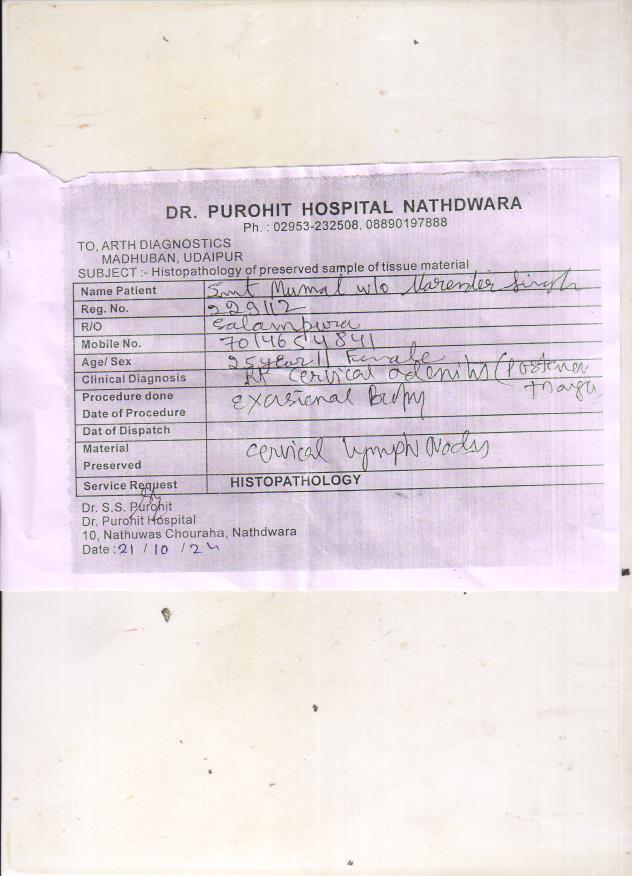 DR. PUROHIT HOSPITAL NATHDWARA
Ph. : 02953-232508, 08890197888
TO, ARTH DIAGNOSTICS
MADHUBAN, UDAIPUR
SUBJECT :- Histopathology of preserved sample of tissue material
Name Patient Smt Mumal w/o Narender Singh
Reg. No. 229112
R/O Salampura
Mobile No.
Age/ Sex 25 year // Female
Clinical Diagnosis Rt cervical adenitis (Posterior
Procedure done Excisional Biopsy
Date of Procedure
Dat of Dispatch
Material cervical lymph Nodes
Preserved
Service Request HISTOPATHOLOGY
Dr. S.S. Purohit
Dr. Purohit Hospital
10, Nathuwas Chouraha, Nathdwara
Date : 21 / 10 / 24